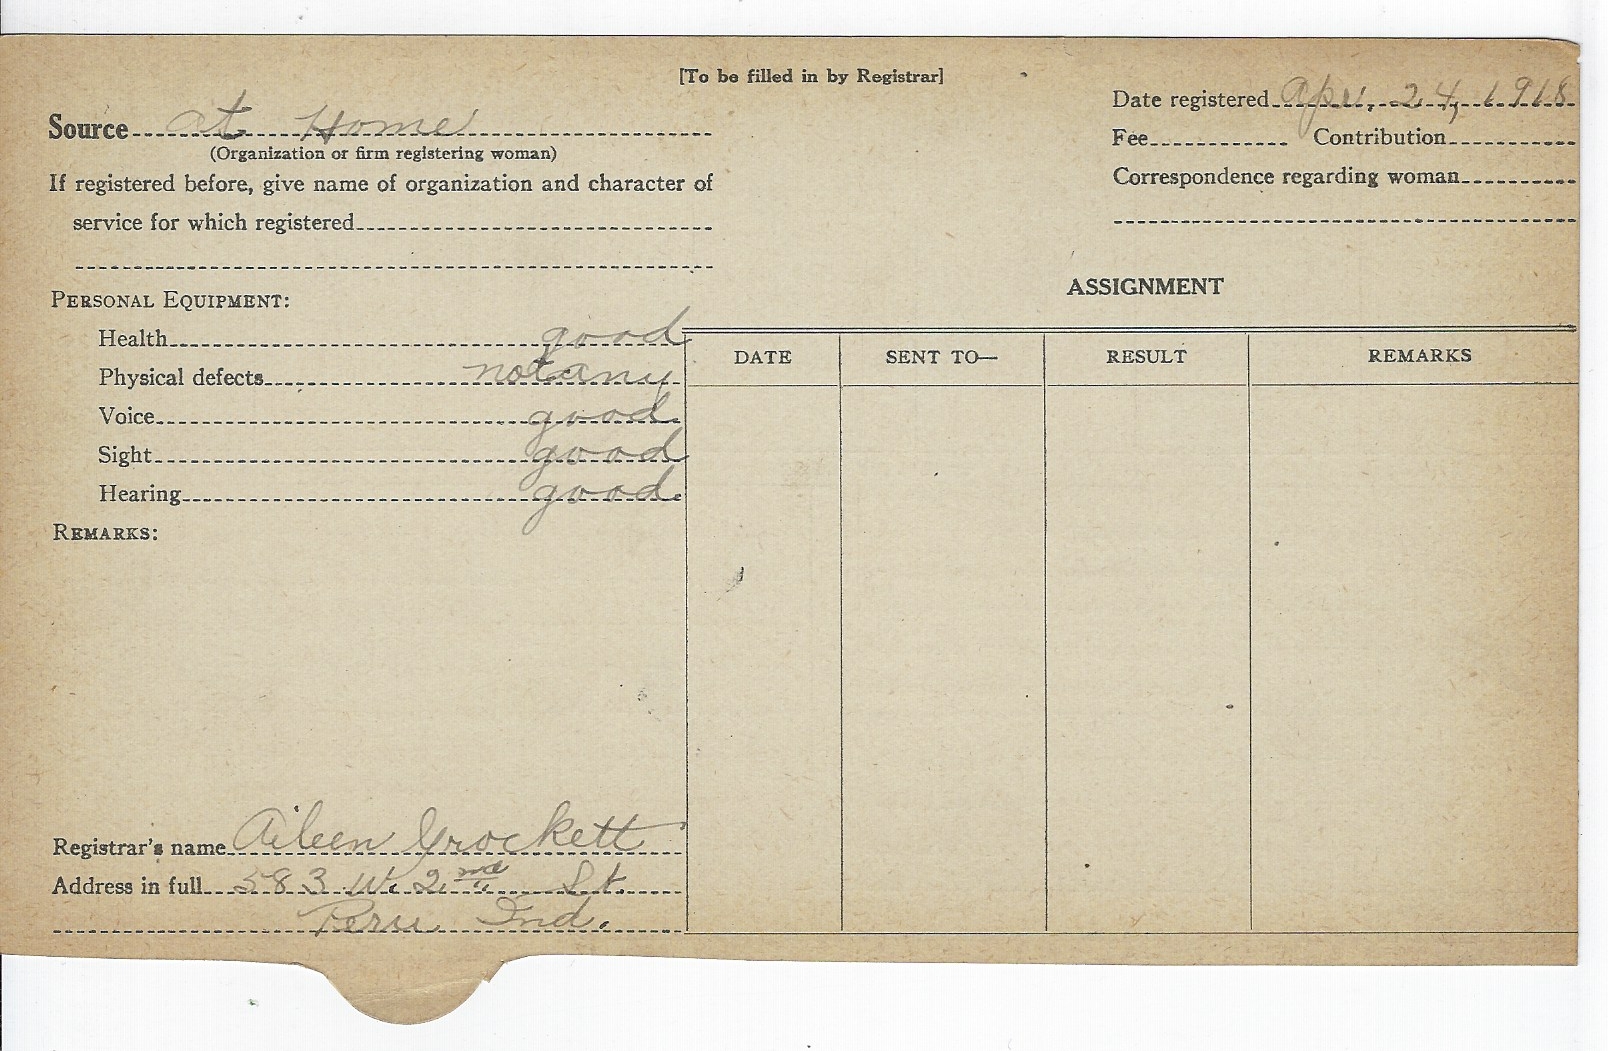 [To be filled in by Registrar]
Source at Home
(Organization or firm registering woman)
If registered before, give name of organization and character of
service for which registered
Date registered Apr. 24, 1918
Fee Contribution
Correspondence regarding woman
PERSONAL EQUIPMENT:
Health good
Physical defects not any
Voice good
Sight good
Hearing good
REMARKS:
ASSIGNMENT
DATE SENT TO— RESULT REMARKS
Registrar's name Aileen Crockett
Address in full 583 W. 2nd St.
Peru Ind.